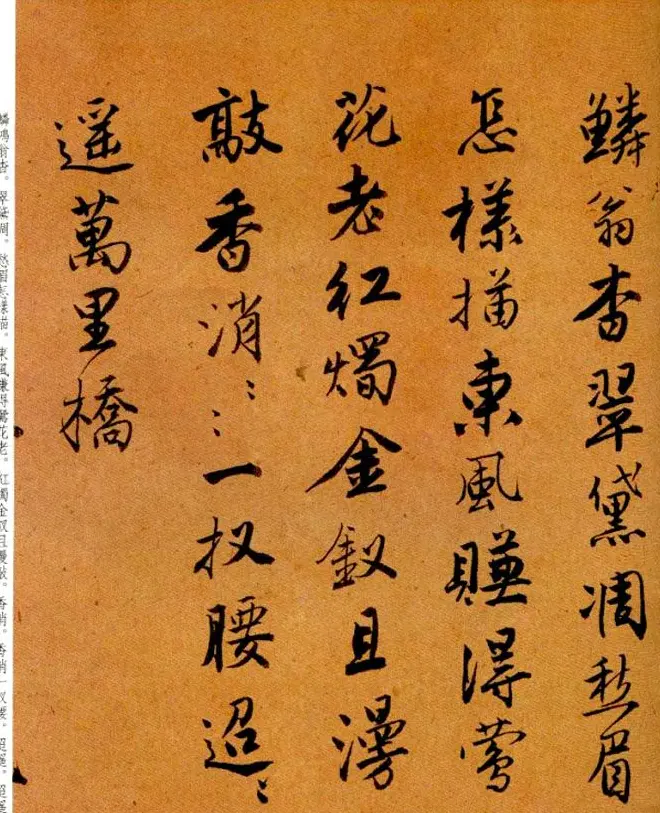 鱗翁杳翠黛凋愁眉
怎樣描東風賺得鶯
花老紅燭金釵且漫
敲香消〻〻一扠腰迢〻
遥萬里橋
鱗鴻翁杳。翠黛凋。愁眉怎樣描。東風賺得鶯花老。紅燭金釵且漫敲。香消。香消一扠腰。迢遥。迢遥